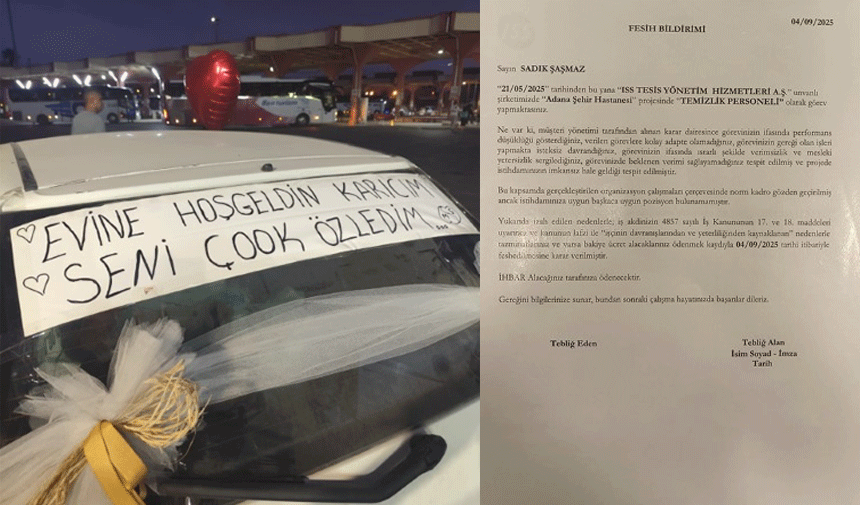 EVİNE HOŞGELDİN KARICIM
SENİ ÇOOK ÖZLEDİM...
04/09/2025
FESİH BİLDİRİMİ
Sayın SADIK ŞAŞMAZ
"21/05/2025" tarihinden bu yana "ISS TESİS YÖNETİM HİZMETLERİ A.Ş." unvanlı
şirketimizde "Adana Şehir Hastanesi" projesinde "TEMİZLİK PERSONELİ" olarak görev
yapmaktasınız.
Ne var ki, müşteri yönetimi tarafından alınan karar dairesince görevinizin ifasında performans
düşüklüğü gösterdiğiniz, verilen görevlere kolay adapte olamadığınız, görevinizin gereği olan işleri
yapmakta isteksiz davrandığınız, görevinizin ifasında ısrarlı şekilde verimsizlik ve mesleki
yetersizlik sergilediğiniz, görevinizde beklenen verimi sağlayamadığınız tespit edilmiş ve projede
istihdamınızın imkansız hale geldiği tespit edilmiştir.
Bu kapsamda gerçekleştirilen organizasyon çalışmaları çerçevesinde norm kadro gözden geçirilmiş
ancak istihdamınıza uygun başkaca uygun pozisyon bulunamamıştır.
Yukarıda izah edilen nedenlerle; iş akdinizin 4857 sayılı İş Kanununun 17. ve 18. maddeleri
uyarınca ve kanunun lafzı ile "işçinin davranışlarından ve yeterliliğinden kaynaklanan" nedenlerle
tazminatlarınız ve varsa bakiye ücret alacaklarınız ödenmek kaydıyla 04/09/2025 tarihi itibariyle
feshedilmesine karar verilmiştir.
İHBAR Alacağınız tarafınıza ödenecektir.
Gereğini bilgilerinize sunar, bundan sonraki çalışma hayatınızda başarılar dileriz.
Tebliğ Eden
Tebliğ Alan
İsim Soyad - İmza
Tarih